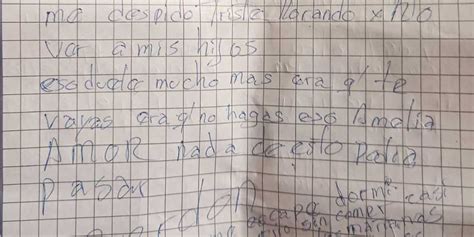 me despido triste llorando x No
ver a mis hijos
eso duele mucho mas ara q' te
vayas ara q' no hagas eso Amelia
AMOR nada de esto podia
pasar
dormi casi
escape comer
sin mañanas